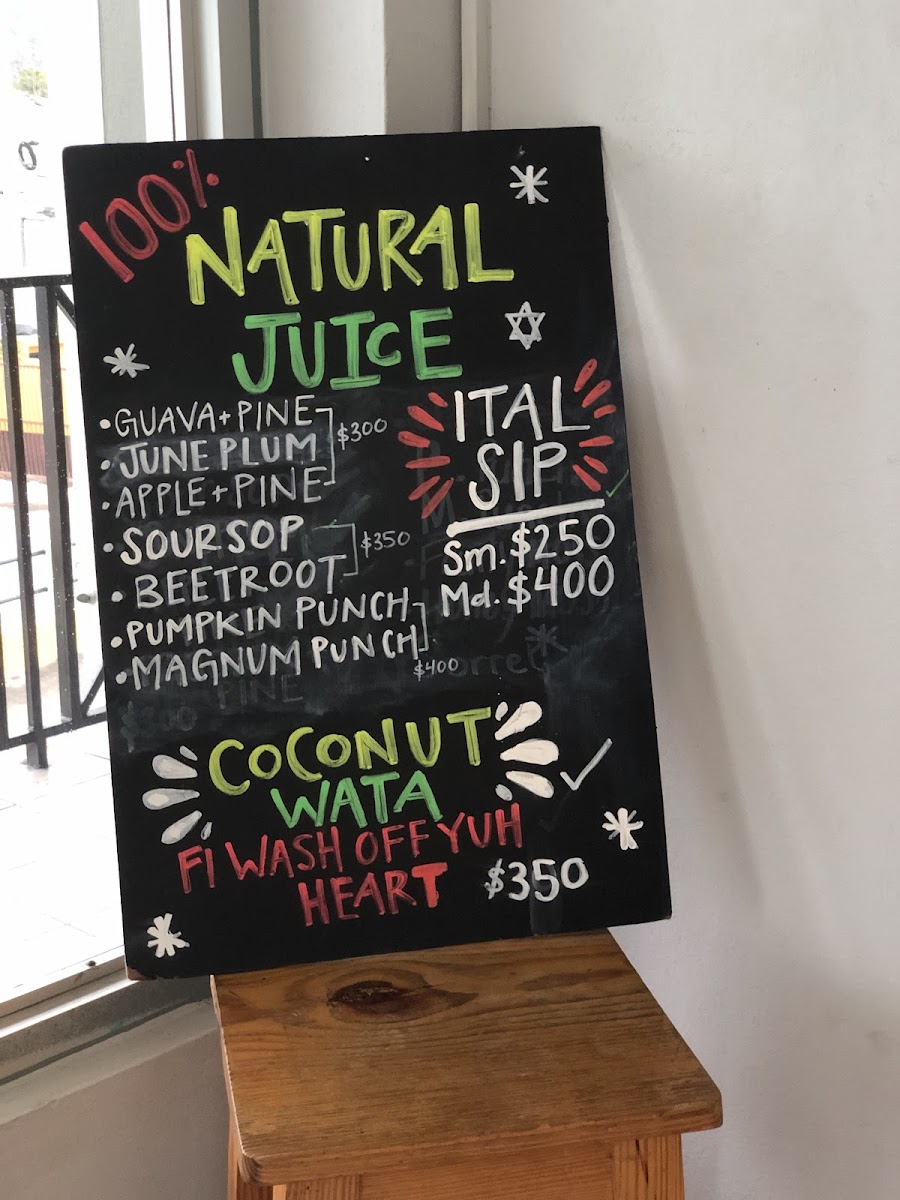 100%
NATURAL
JUICE
• GUAVA + PINE
• JUNE PLUM
• APPLE + PINE
$300
• SOURSOP
• BEETROOT
$350
• PUMPKIN PUNCH
• MAGNUM PUNCH
$400
ITAL
SIP
Sm. $250
Md. $400
COCONUT
WATA
FI WASH OFF YUH
HEART
$350
PINE